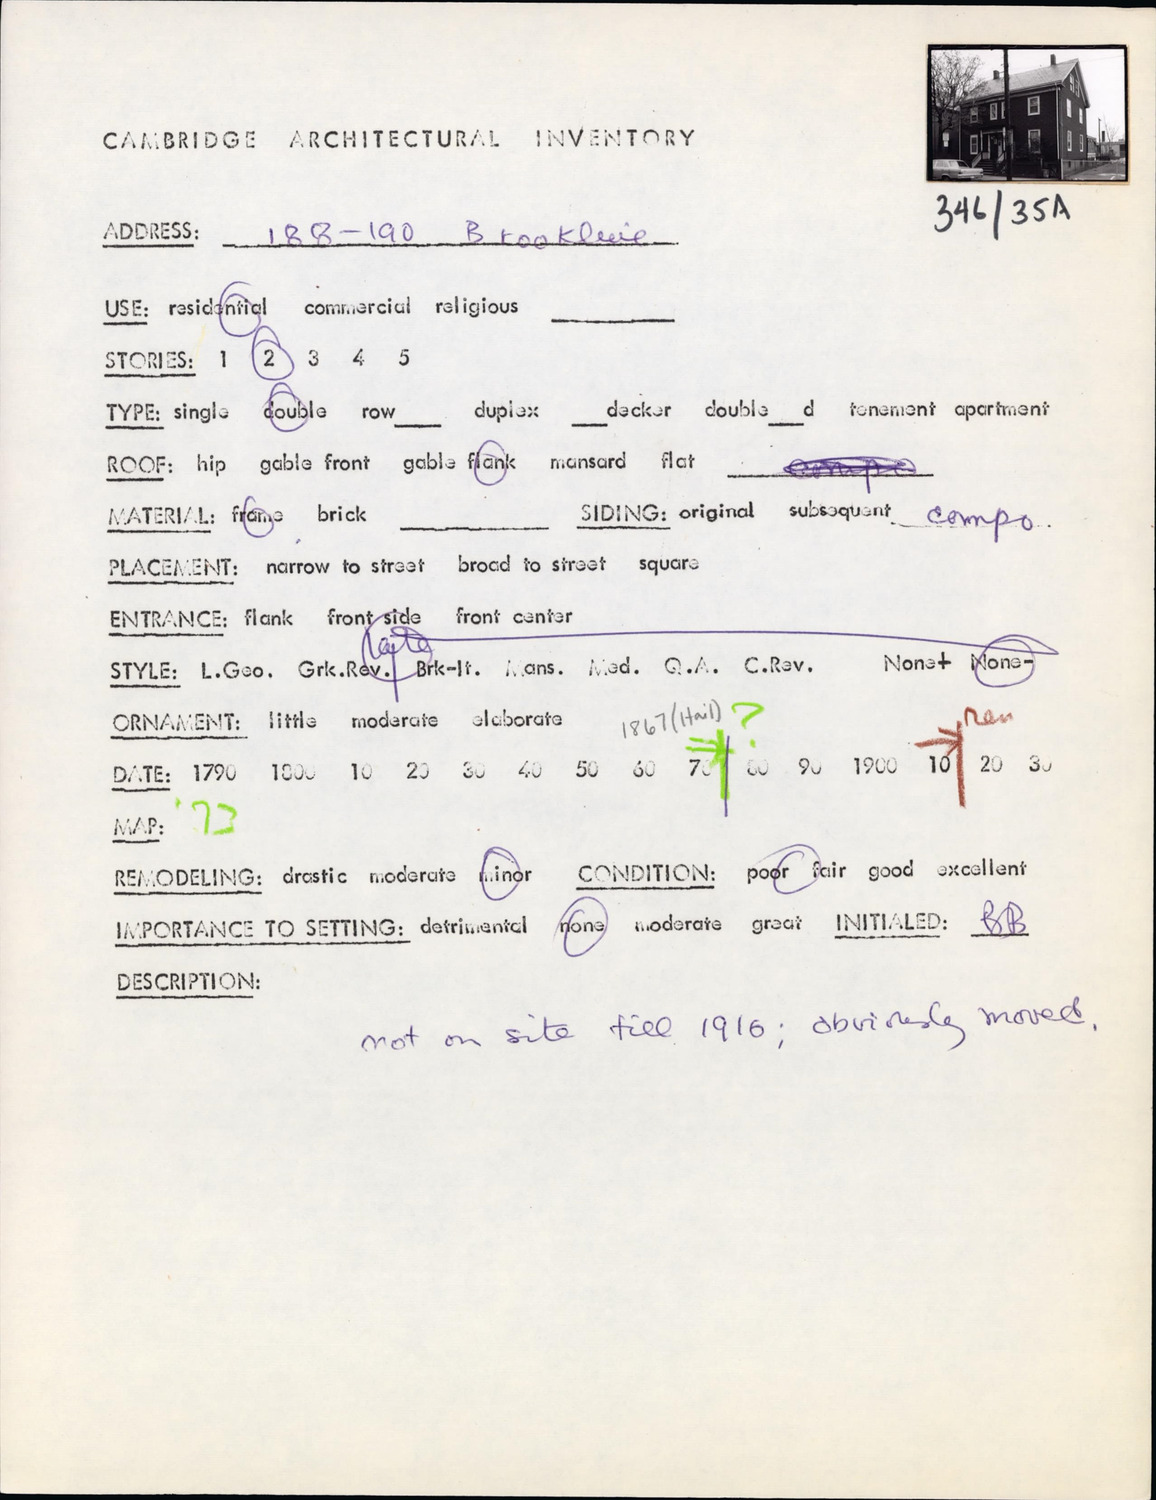 346/35A
CAMBRIDGE ARCHITECTURAL INVENTORY
ADDRESS: 188-190 Brookline
USE: residential commercial religious
STORIES: 1 2 3 4 5
TYPE: single double row___ duplex ___decker double___d tenement apartment
ROOF: hip gable front gable flank mansard flat compo
MATERIAL: frame brick ______ SIDING: original subsequent compo.
PLACEMENT: narrow to street broad to street square
ENTRANCE: flank front side front center
late
STYLE: L.Geo. Grk.Rev. Brk-It. Mans. Med. Q.A. C.Rev. None+ None-
ORNAMENT: little moderate elaborate 1867 (Hail) ?
DATE: 1790 1800 10 20 30 40 50 60 70 80 90 1900 10 20 30
MAP: '73
REMODELING: drastic moderate minor CONDITION: poor fair good excellent
IMPORTANCE TO SETTING: detrimental none moderate great INITIALED: BB
DESCRIPTION:
not on site till 1916; obviously moved.